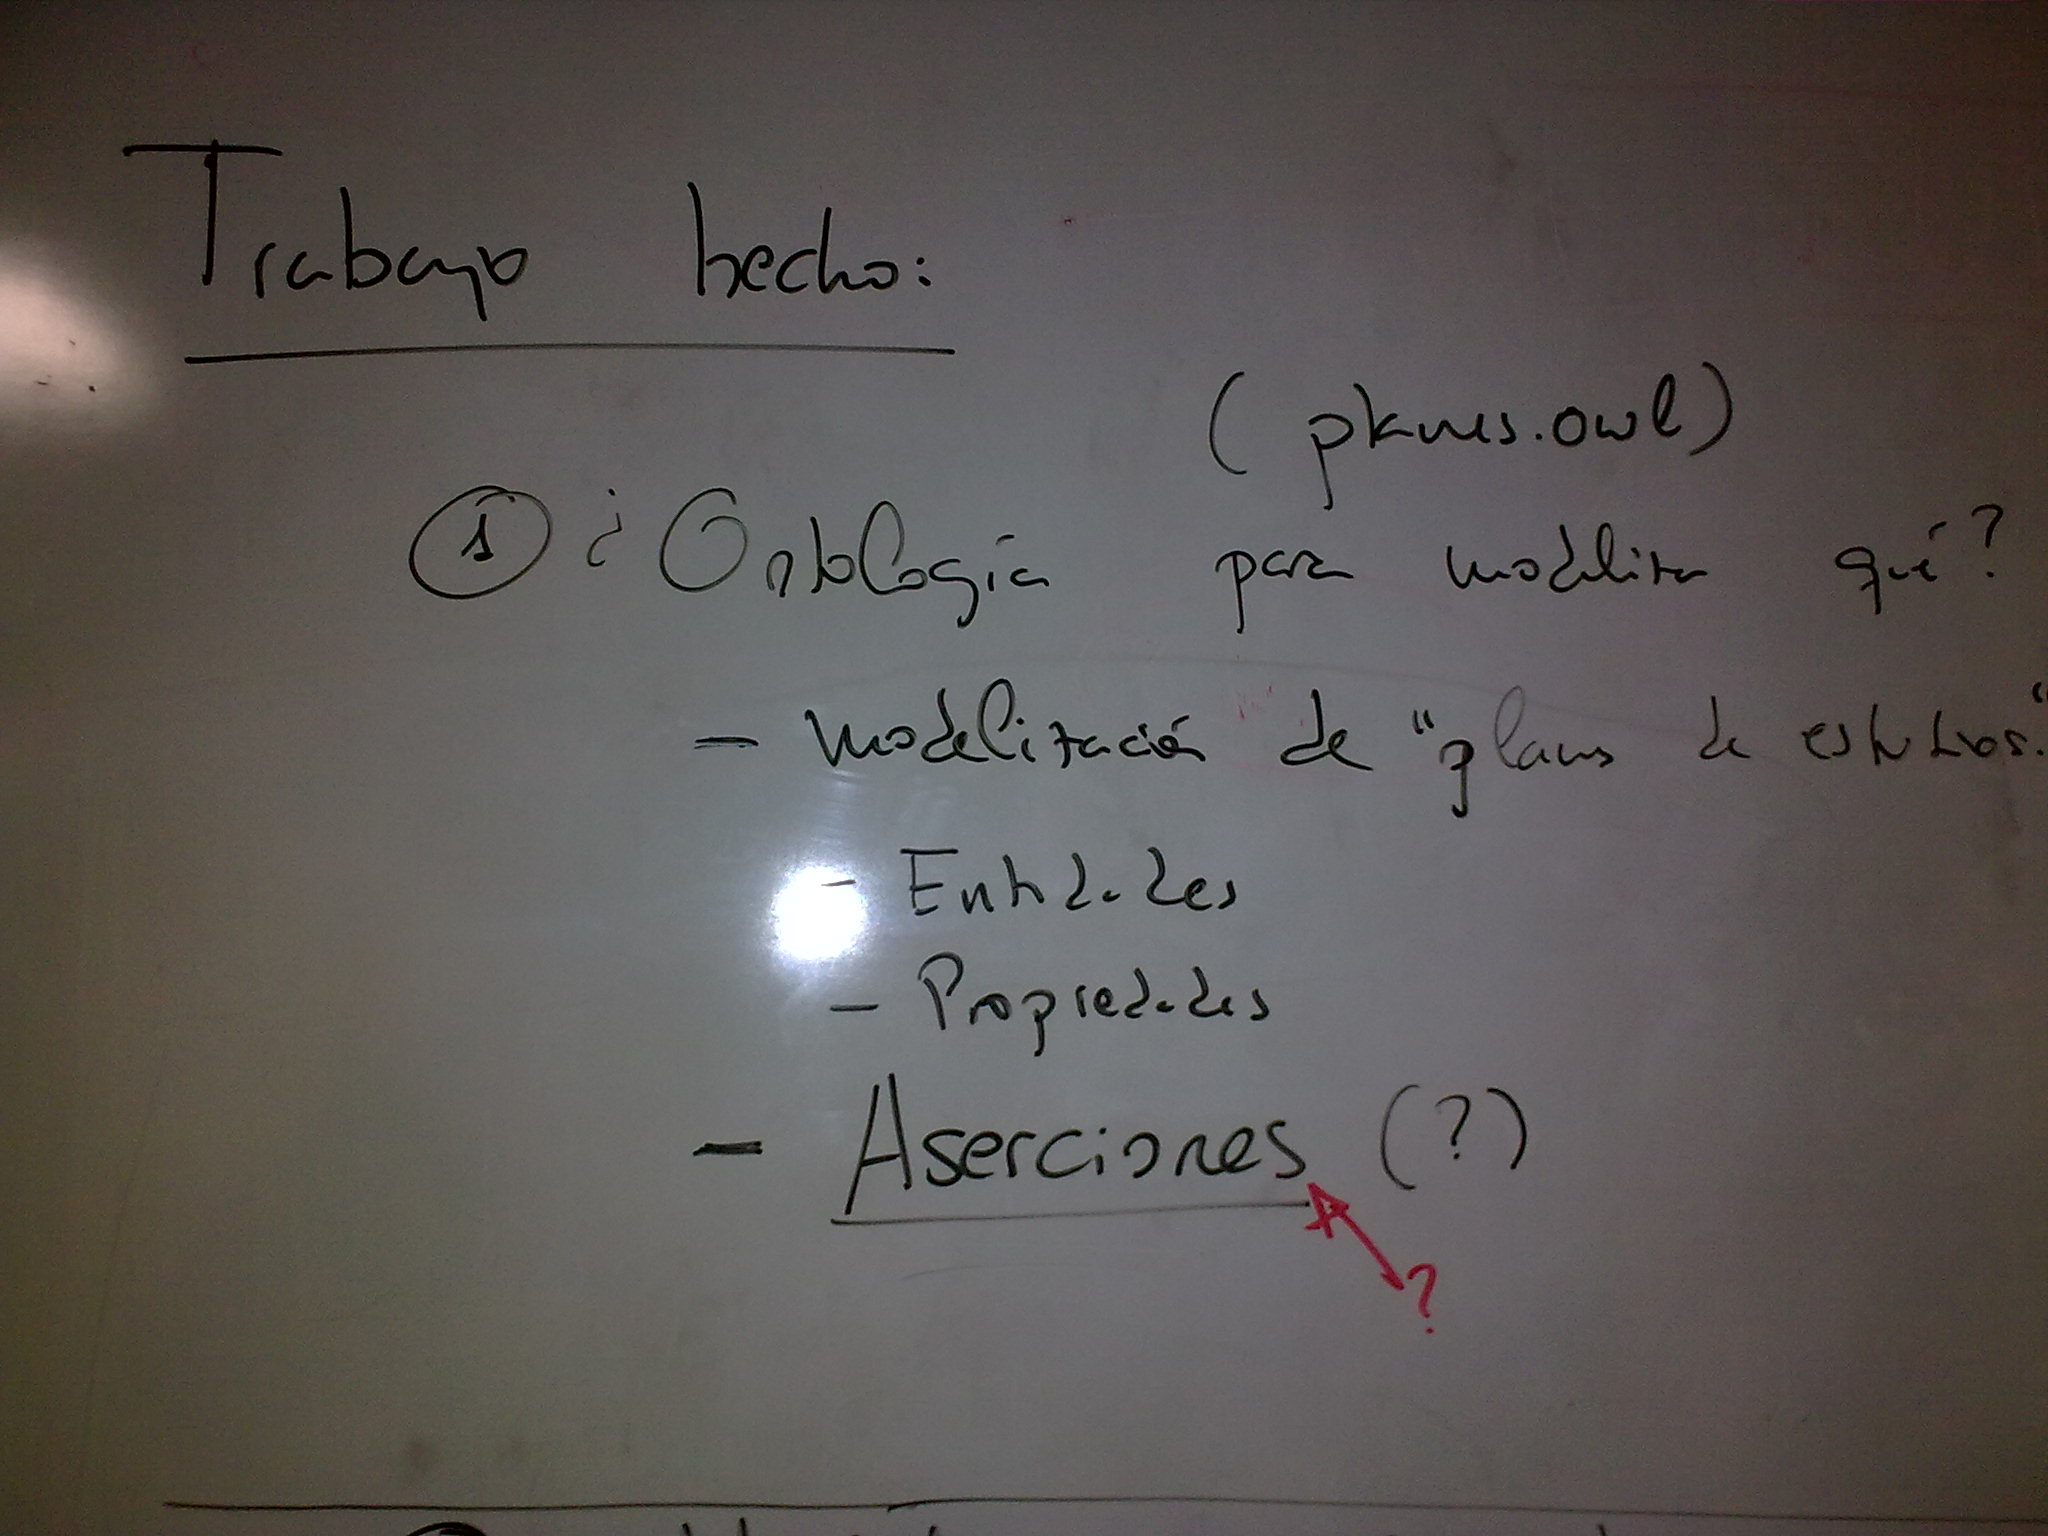 Trabajo hecho:
(planes.owl)
① ¿Ontología para modelizar qué?
- modelización de "planes de estudios."
- Entidades
- Propiedades
- Aserciones (?)
?